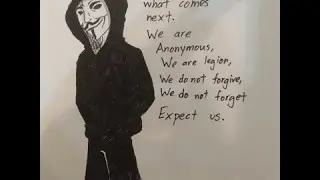 what comes
next.
We are
Anonymous,
We are legion,
We do not forgive,
We do not forget
Expect us.